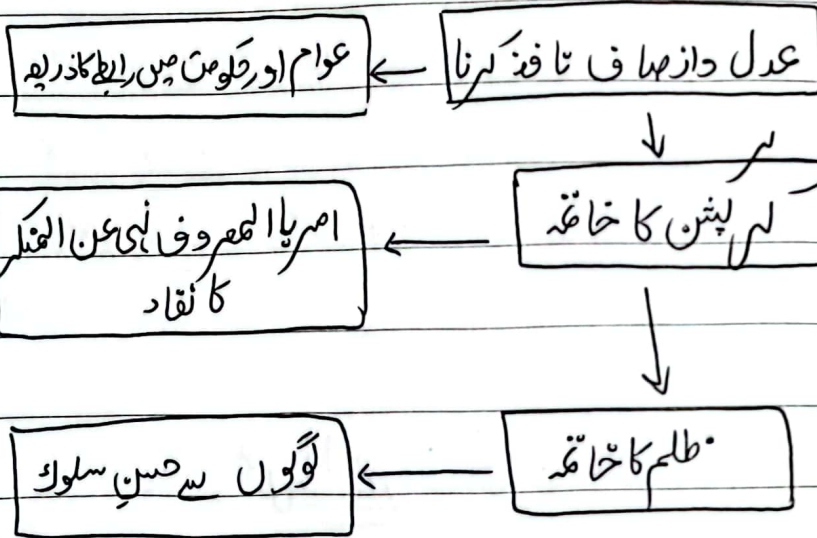 عدل و انصاف نافذ کرنا
عوام اور حکومت میں رابطے کا ذریعہ
کرپشن کا خاتمہ
امر بالمعروف نہی عن المنکر
کا نفاد
ظلم کا خاتمہ
لوگوں سے حسنِ سلوک